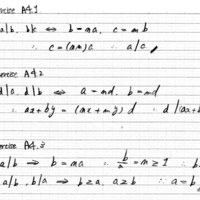 ercise A4.1
a|b, b|c ⇔ b = na, c = mb
∴ c = (mn)a ∴ a|c,
ercise A4.2
d|a, d|b ⇔ a = nd, b = md
∴ ax + by = (nx + my) d ∴ d|(ax + b
ercise A4.3
a|b ⇒ b = ma ∴ b/a = m ≥ 1 ∴ b
a|b, b|a ⇒ b ≥ a, a ≥ b ∴ a = b